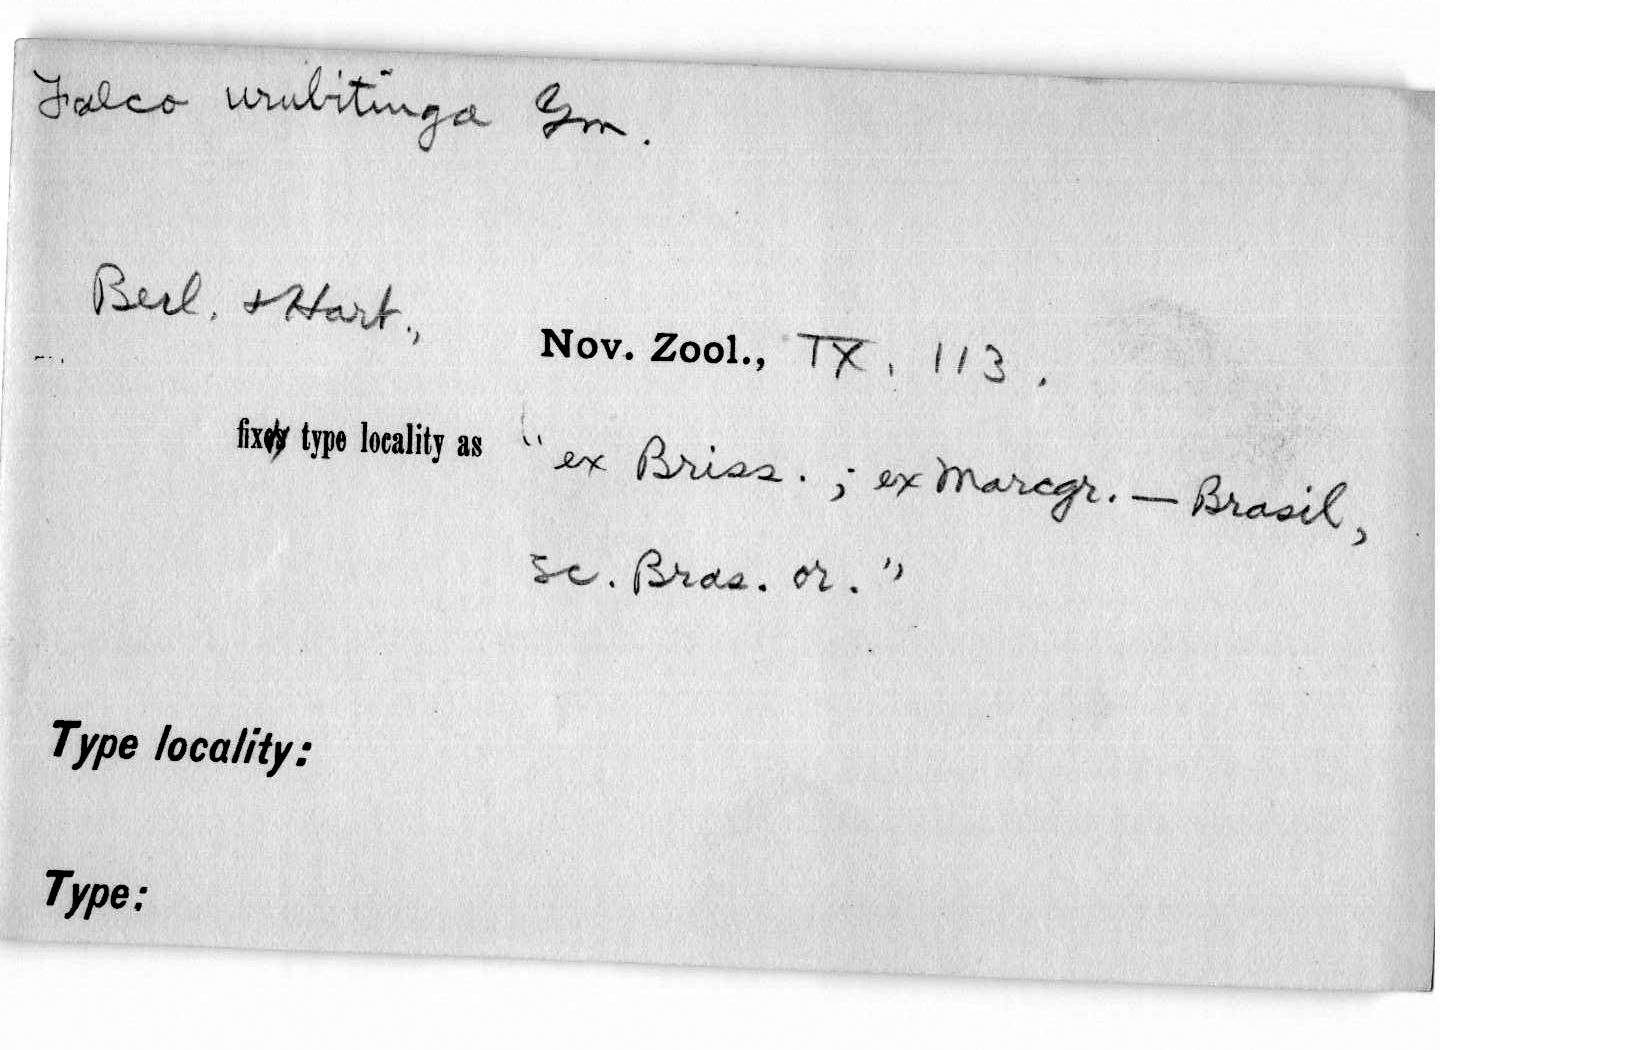 Falco urubitinga Gm.
Berl. + Hart., Nov. Zool., IX, 113.
fix type locality as "ex Briss.; ex Marcgr. — Brasil,
sc. Bras. or."
Type locality:
Type: